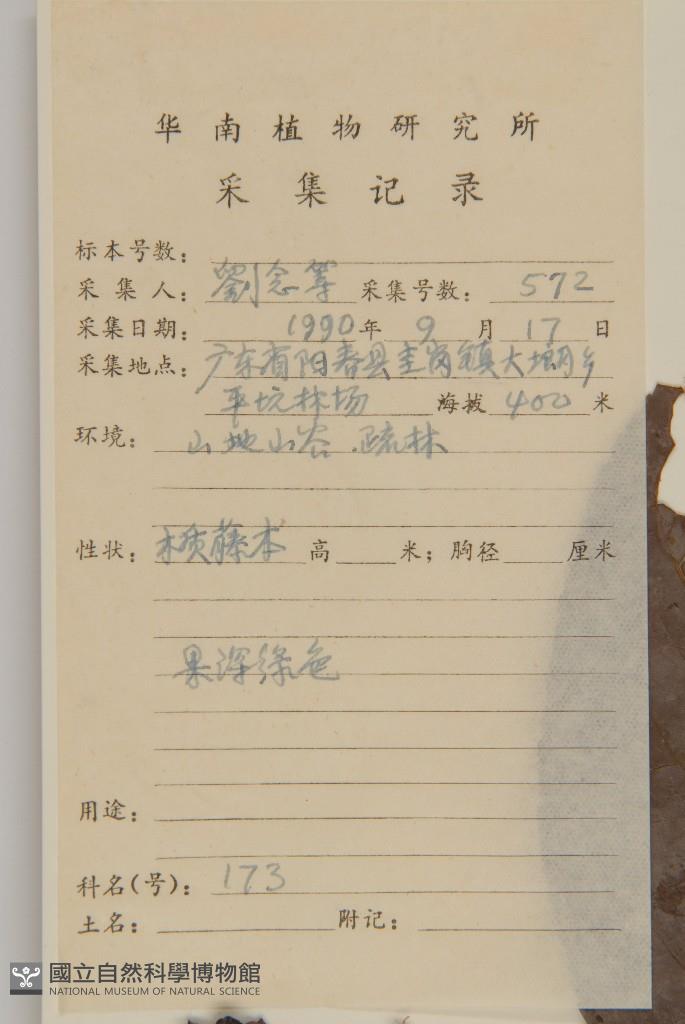 华南植物研究所
采集记录
标本号数：
采集人：劉念等 采集号数：572
采集日期：1990年9月17日
采集地点：广东省阳春县圭岗镇大垌乡
平坑林场 海拔400米
环境：山地山谷.疏林
性状：木质藤本 高 米；胸径 厘米
果深绿色
用途：
科名(号)：173
土名： 附记：
國立自然科學博物館
NATIONAL MUSEUM OF NATURAL SCIENCE